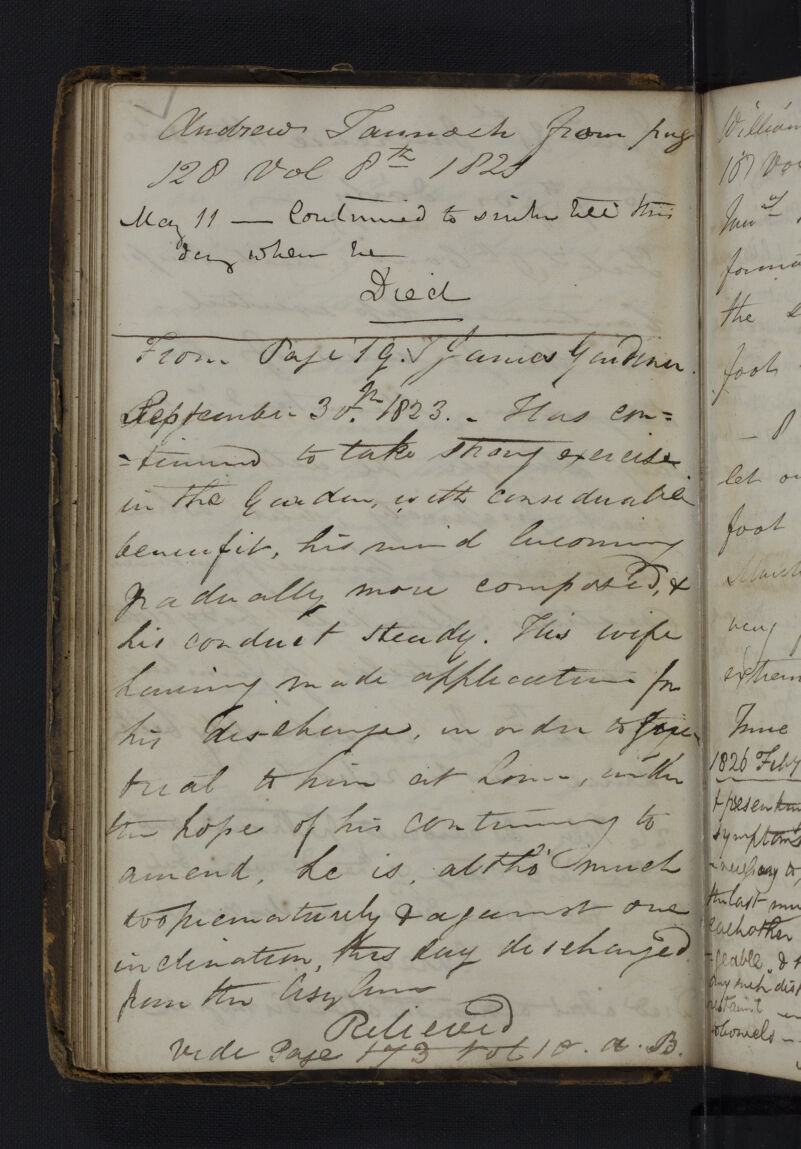 Andrew Tannoch from page
128 Vol 8th 182
May 11 — Continued to sink till this
day when he
Died
From Page 19. James Gardiner.
September 30th 1823. - Has con=
=tinued to take strong exercise
in the Garden, with considerable
benefit, his mind becoming
gradually more composed, &
his conduct steady. His wife
having made application for
his discharge, in order to give
trial to him at home, under
the hope of his continuing to
amend, he is, altho' much
too prematurely & against our
inclination, this day discharged
from the Asylum
Relieved
Vide Page 173 Vol 10. a. B.
William
107 Vo
forma
the
foot
let
foot
March
very
extrem
June
1826 Feby
symptoms
the last
each other
bowels -